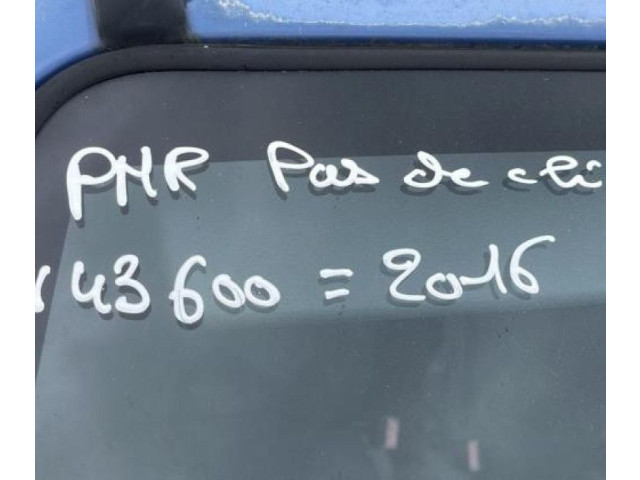 PMR Pas de cli
43 600 = 2016